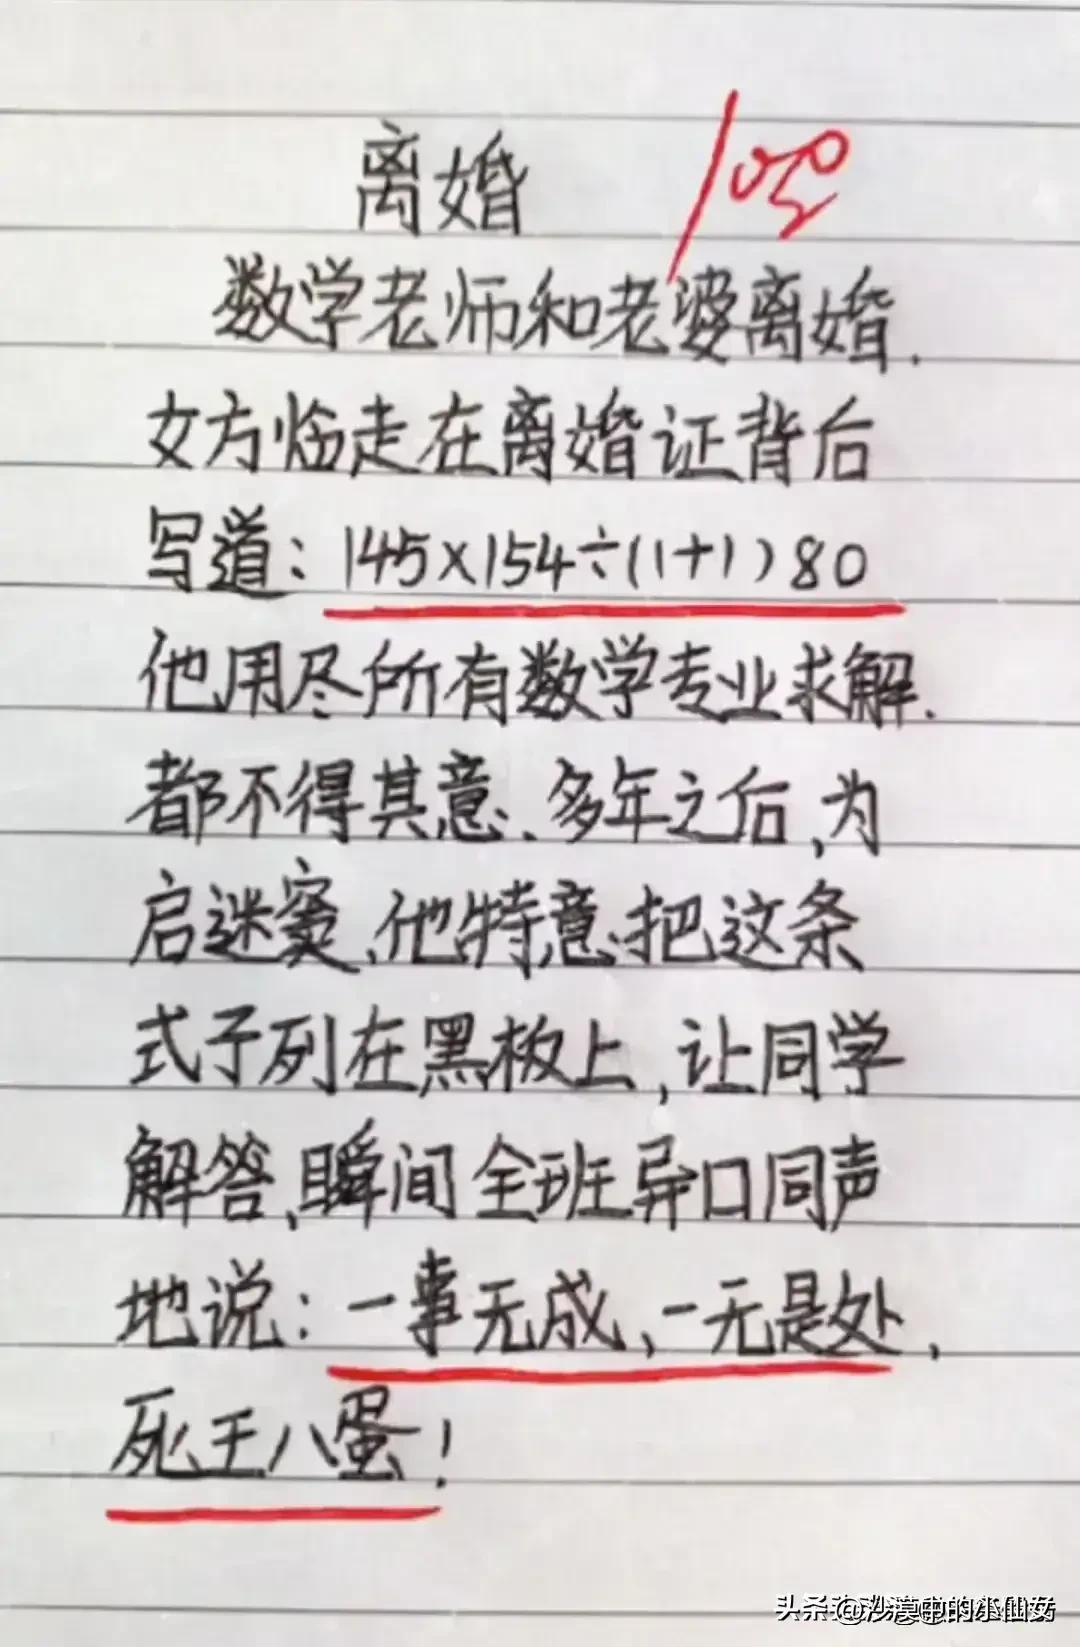 离婚
数学老师和老婆离婚.
女方临走在离婚证背后
写道:145×154÷(1+1)80
他用尽所有数学专业求解.
都不得其意、多年之后,为
启迷案、他特意把这条
式子列在黑板上,让同学
解答、瞬间全班异口同声
地说:一事无成、一无是处,
死王八蛋!
头条@沙漠中的小仙女